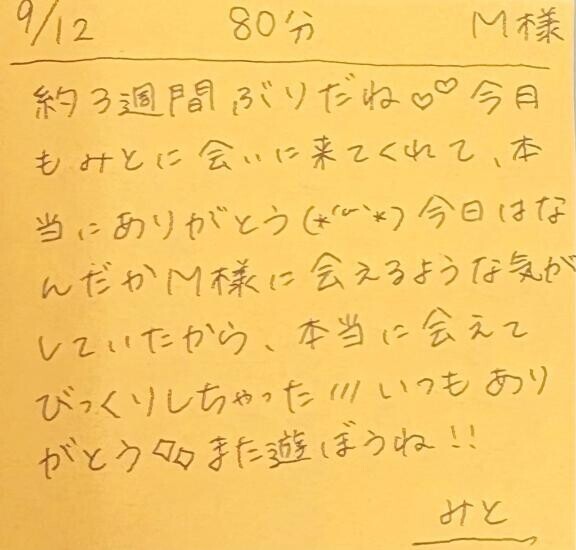 9/12 80分 M様
約3週間ぶりだね♡♡今月
もみとに会いに来てくれて、本
当にありがとう(*´˘`*)今日はな
んだかM様に会えるような気が
していたから、本当に会えて
びっくりしちゃった///いつもあり
がとう◇◇また遊ぼうね!!
みと